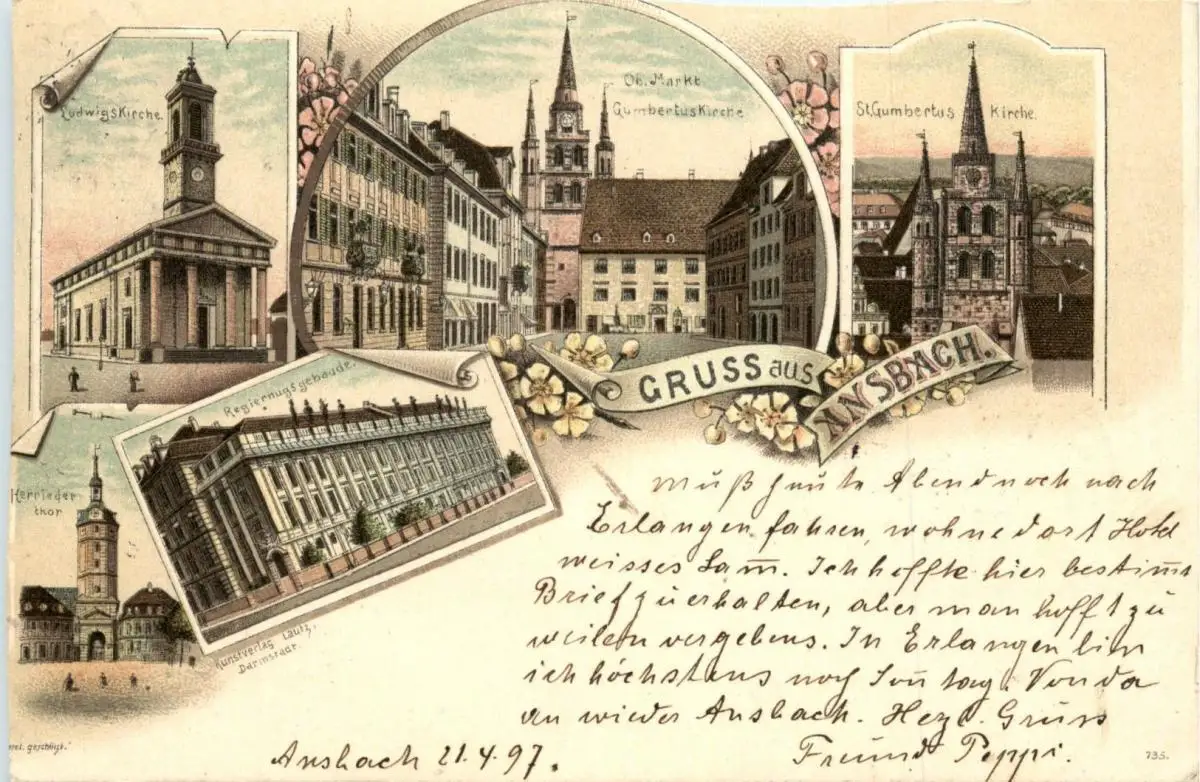 Ludwigskirche.
Ob. Markt
Gumbertuskirche
St. Gumbertus Kirche.
GRUSS aus ANSBACH.
Regierungsgebäude.
Herrieder
thor
Kunstverlag Lautz,
Darmstadt.
muß heute Abend noch nach
Erlangen fahren, wohne dort Hotel
weisses Lam̅. Ich hoffte hier bestim̅t
Brief zu erhalten, aber man hofft zu
weilen vergebens. In Erlangen bin
ich höchstens noch Son̅tag. Von da
an wieder Ansbach. Herzl. Gruss
Freund Peppi.
Ansbach 21.4.97.
geschützt.
735.